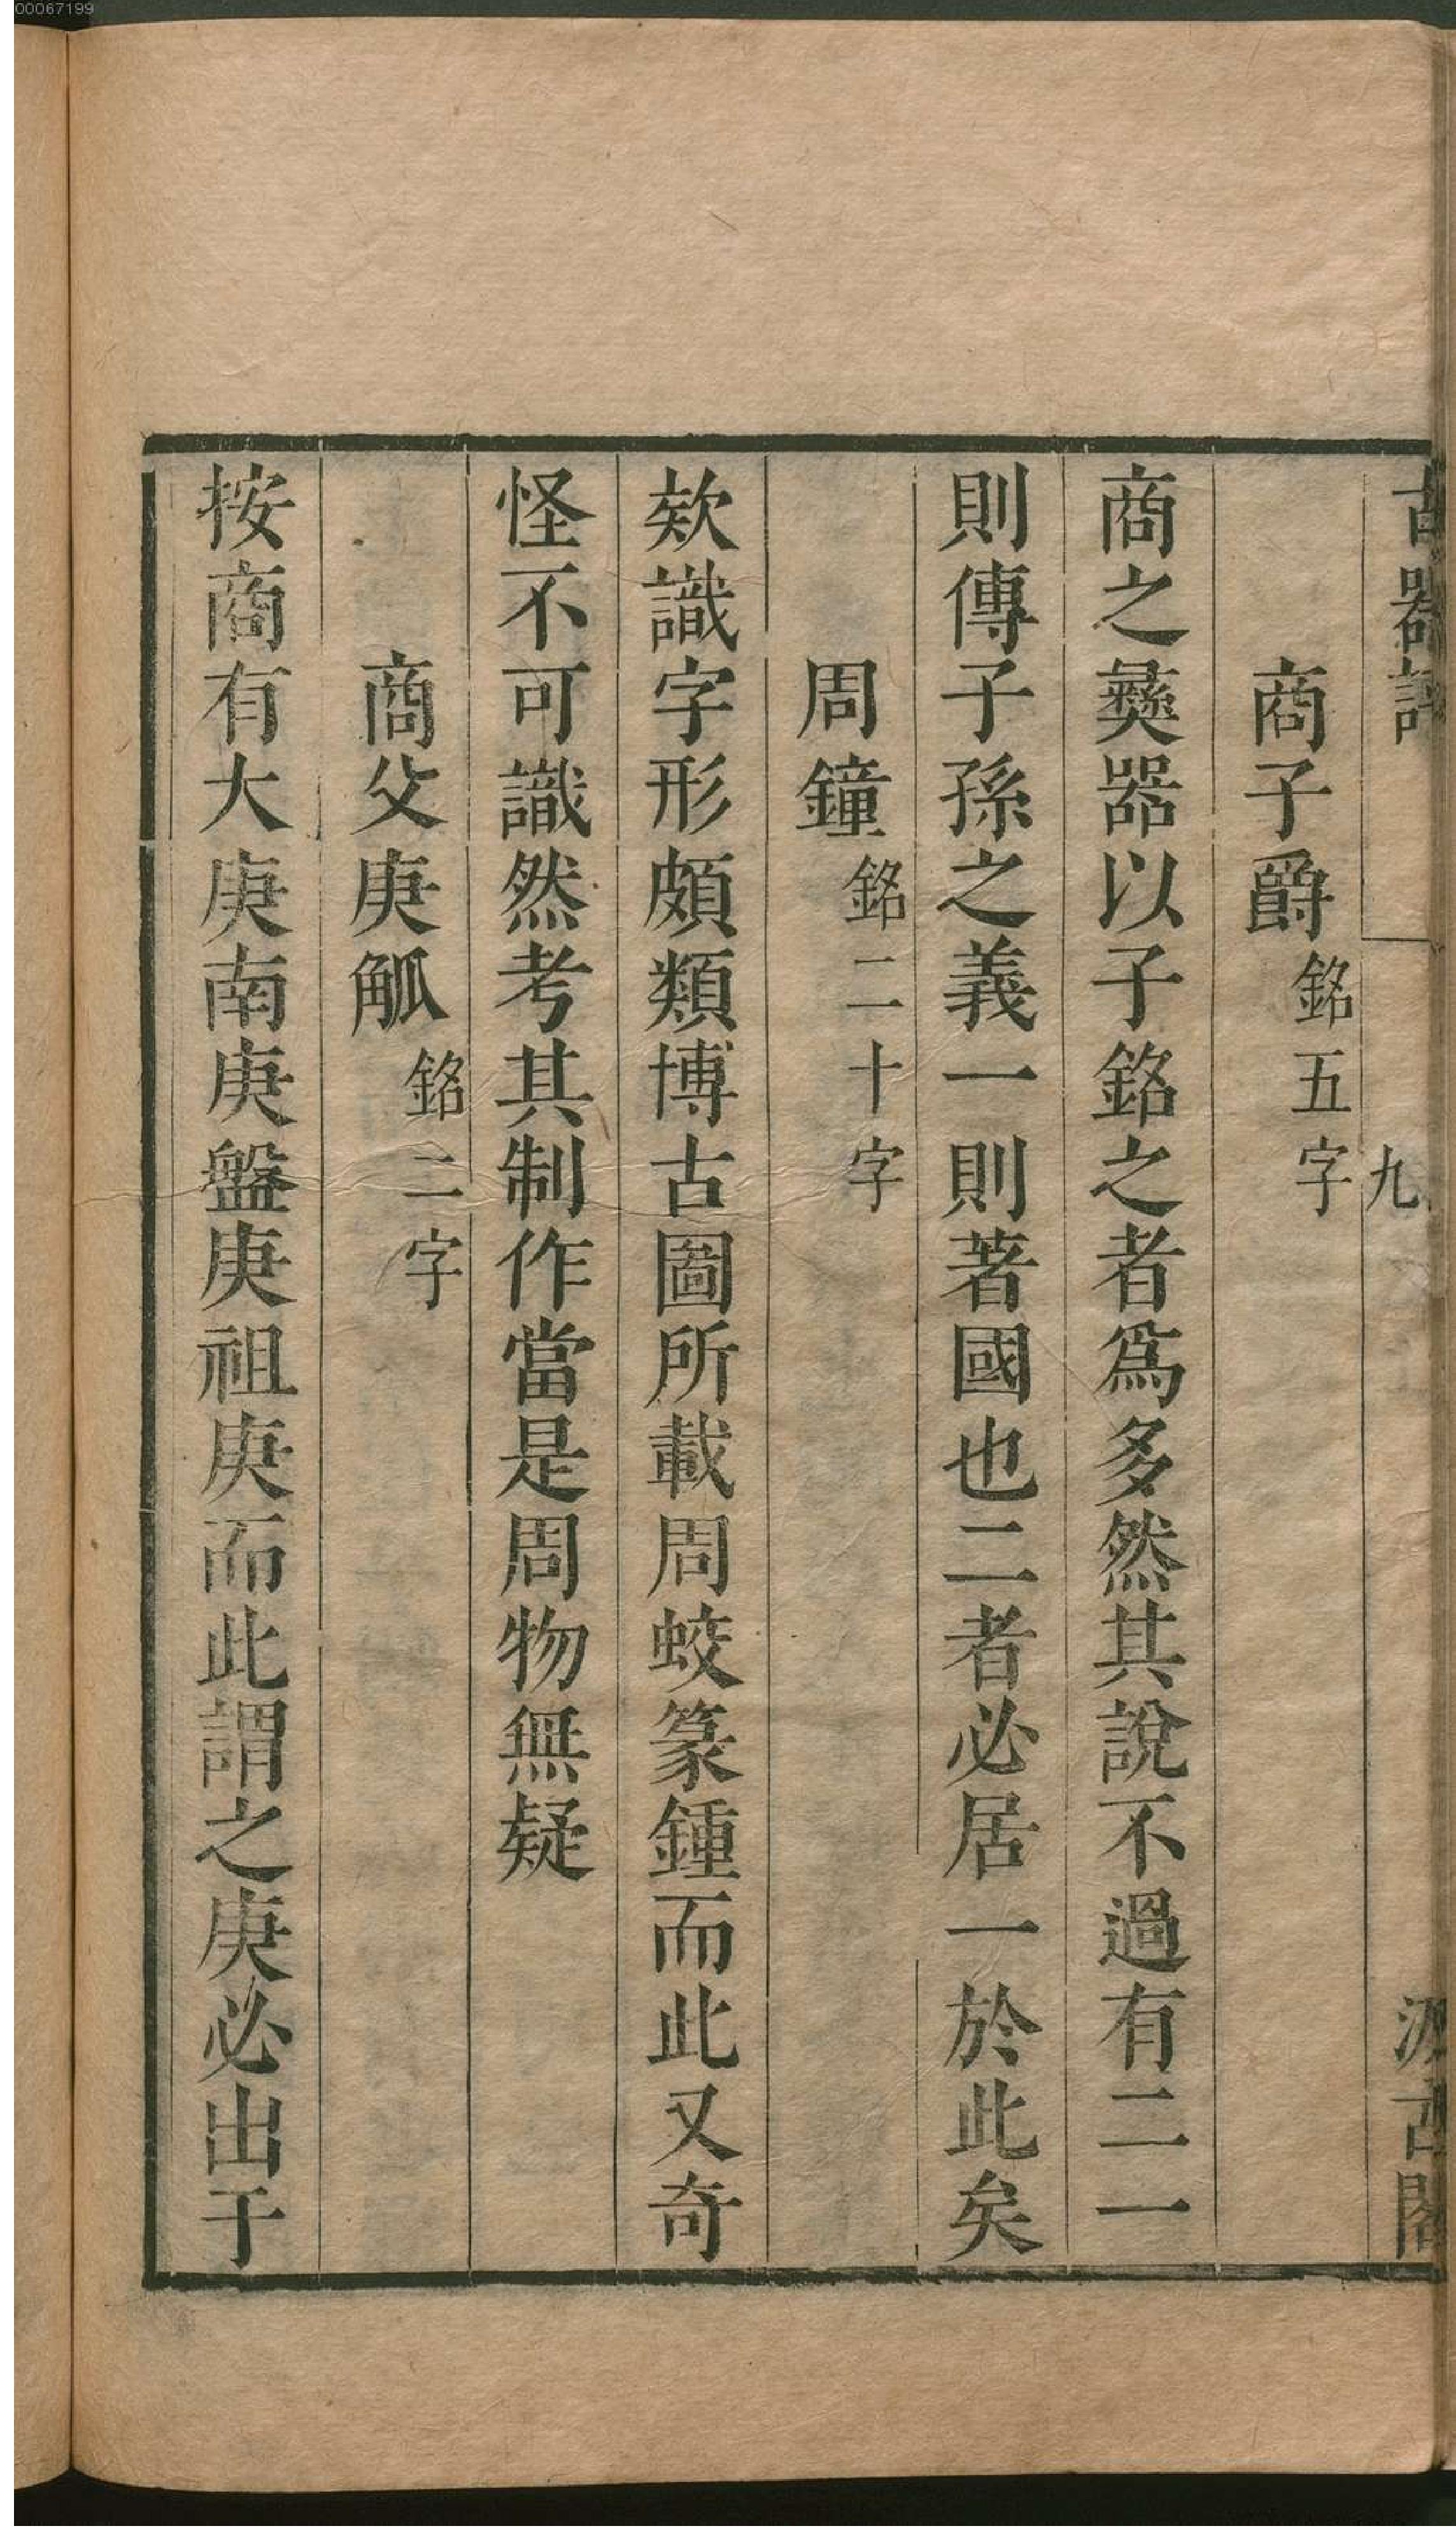 00067199
古器評
九
汲古閣
商子爵銘五字
商之彝器以子銘之者爲多然其說不過有二一
則傳子孫之義一則著國也二者必居一於此矣
周鐘銘二十字
欵識字形頗類博古圖所載周蛟篆鍾而此又奇
怪不可識然考其制作當是周物無疑
商父庚觚銘二字
按商有大庚南庚盤庚祖庚而此謂之庚必出于